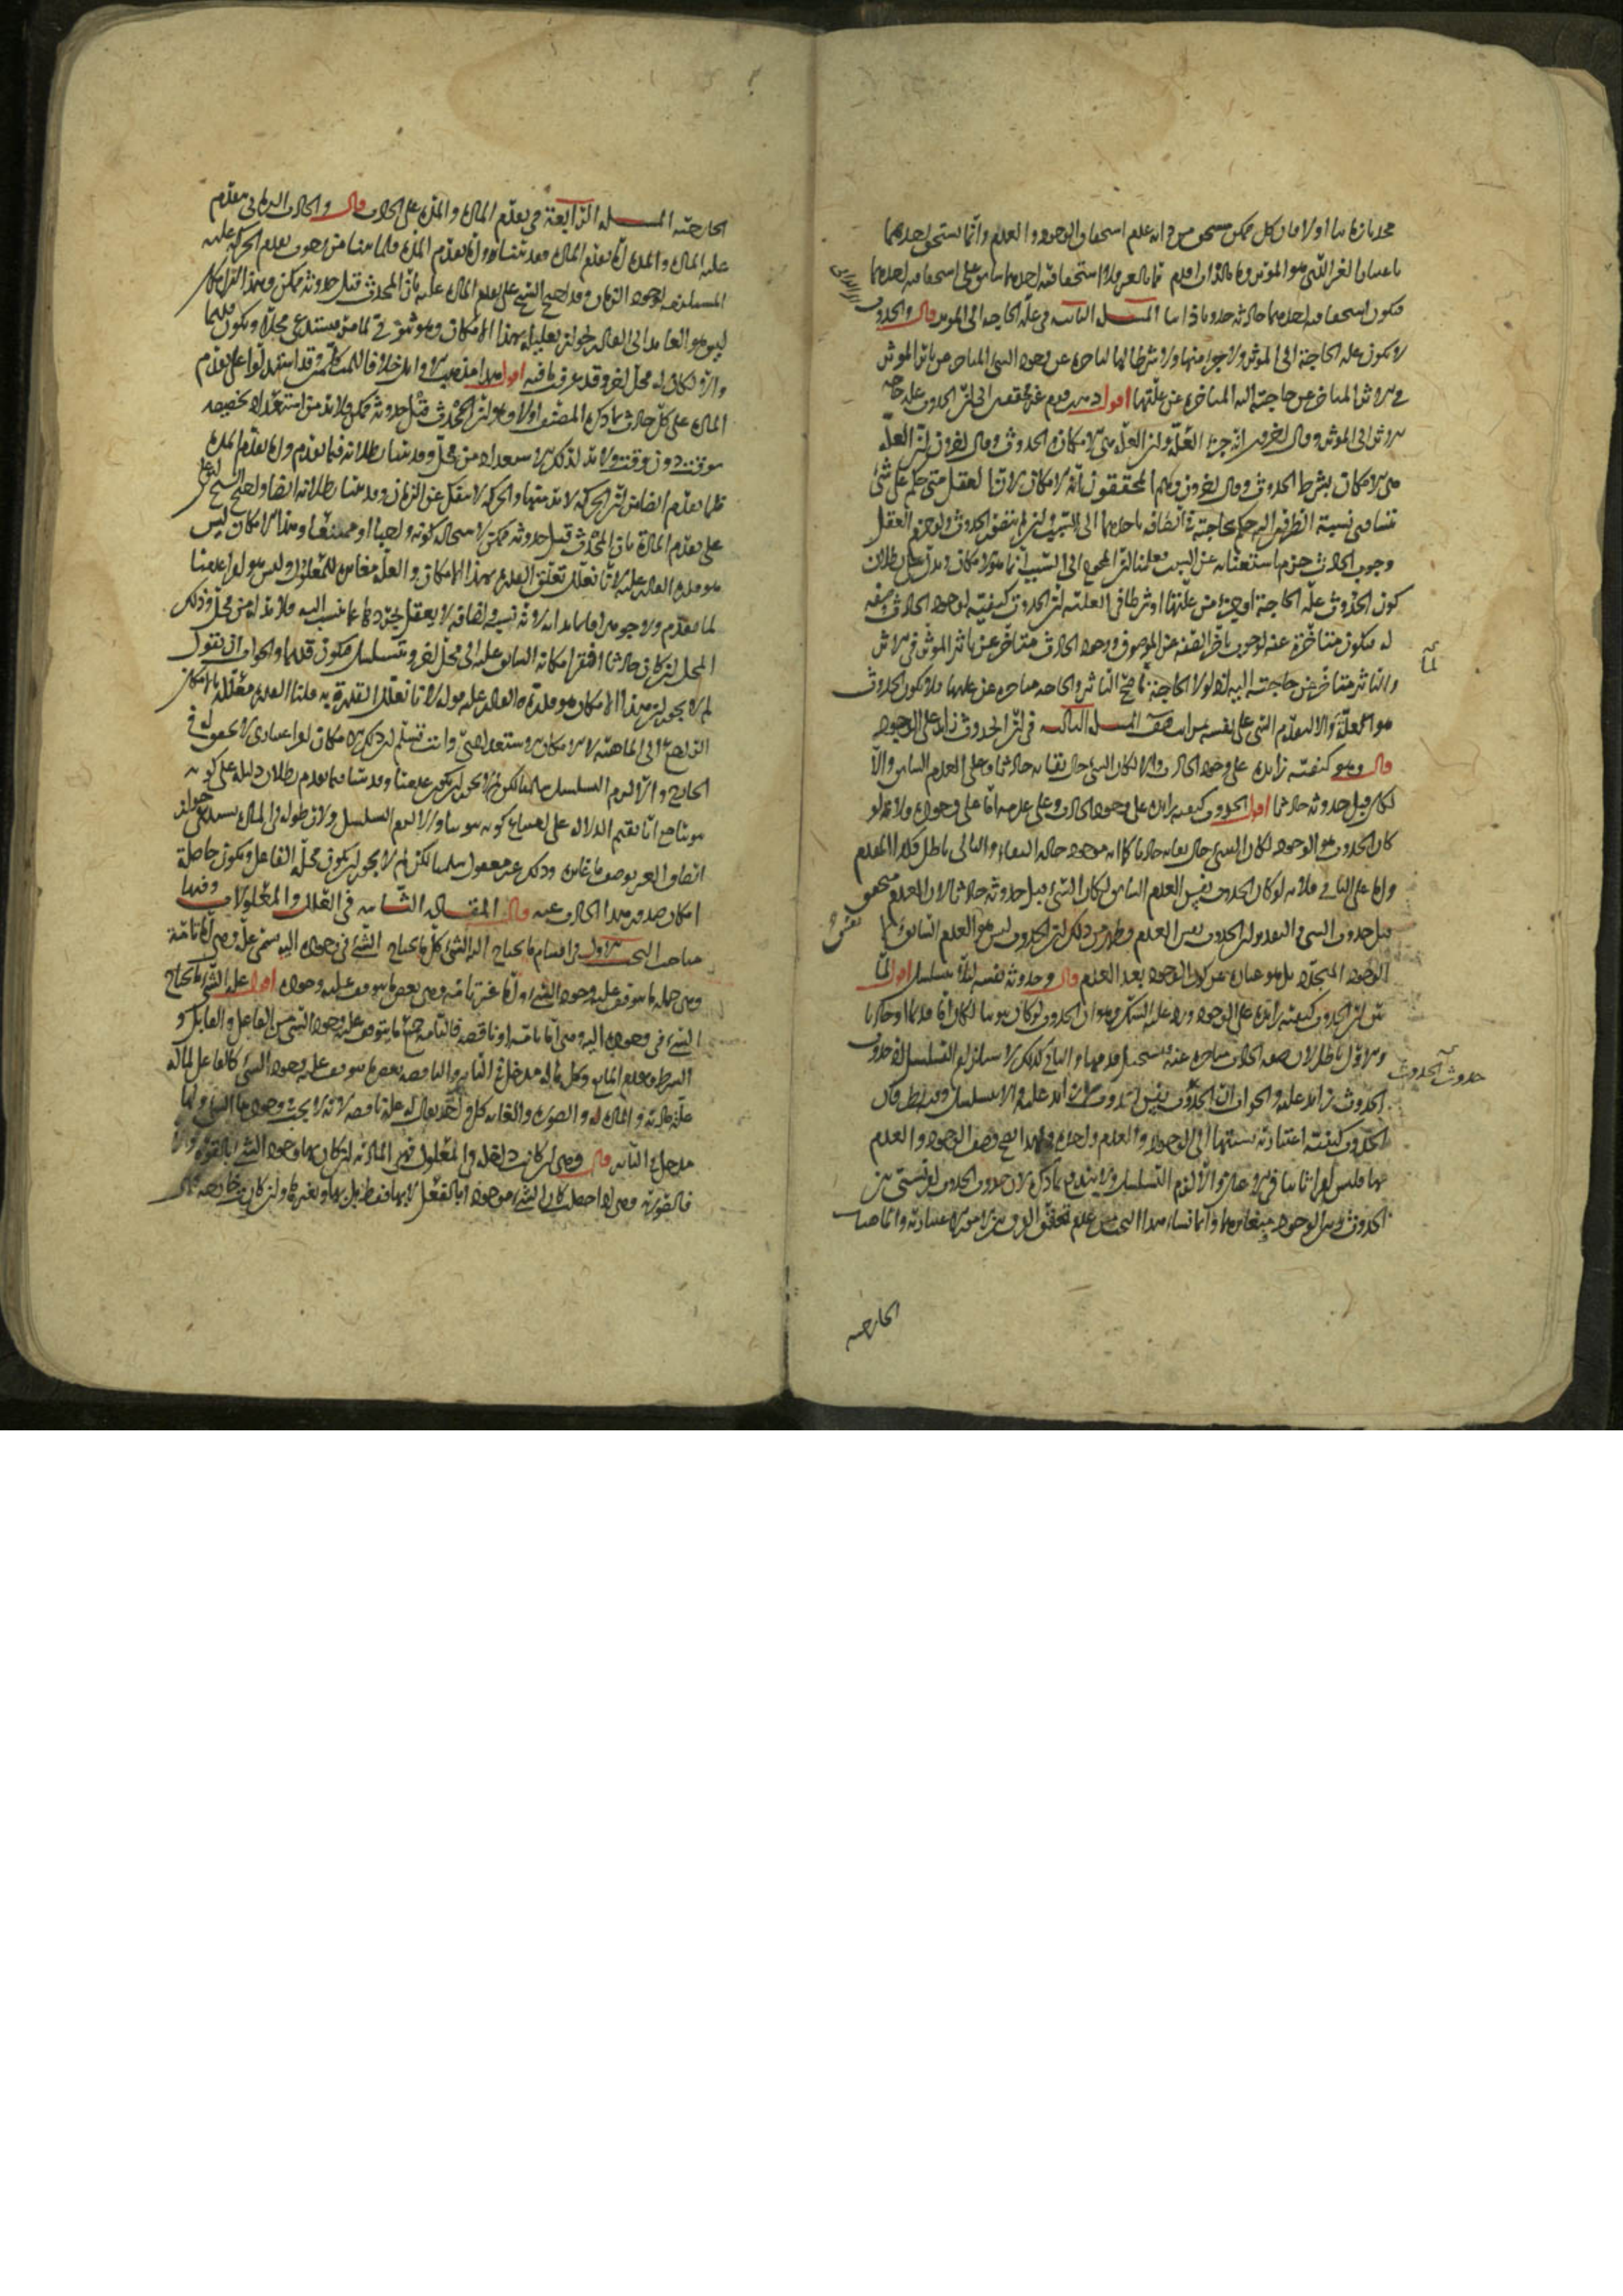 محدثا زمانيا اولا فان كل ممكن مستحق من ذاته عدم استحقاق الوجود والعدم وانما يستحق احدهما
باعتبار امر الشى هو المؤثر وما بالذات اقدم مما بالغير فلا استحقاقية احدهما سابق على استحقاقية احدهما
فيكون استحقاقية احدهما حادثة حدوثا ذاتيا المسئلة الثانية فى علة الحاجة الى المؤثر قال والحدوث
لا يكون علة الحاجة الى المؤثر ولا جزءا منها ولا شرطا لها لتاخره عن وجود الشى المتاخر عن تاثير المؤثر
فى الاثر المتاخر عن حاجته اليه المتاخرة عن علتها اقول ذهب قوم غير محققين الى ان الحدوث علة حاجة
الاثر الى المؤثر وقال اخرون انه جزء العلة وان العلة هى الامكان والحدوث وقال اخرون ان العلة
هى الامكان بشرط الحدوث وقال اخرون وهم المحققون انه الامكان لان العقل متى حكم على شئ
بتساوى نسبة الطرفين اليه حكم بحاجته فى اتصافه باحدهما الى السبب وان لم يتصور الحدوث ولو جزم العقل
وجوب الحادث جزم باستغنائه عن السبب فعلمنا ان المحوج الى السبب انما هو الامكان ويدل على بطلان
كون الحدوث علة الحاجة او جزءا من علتها او شرطا فى العلية ان الحدوث كيفية لوجود الحادث وصفة
له فيكون متاخرة عنه لوجوب تاخر الصفة عن الموصوف ووجود الحادث متاخر عن تاثير المؤثر فى الاثر
والتاثير متاخر عن حاجته اليه اذ لولا الحاجة لما صح التاثير والحاجة متاخرة عن علتها فلا يكون الحدوث
هو العلة والا لتقدم الشى على نفسه بمراتب هف المسئلة الثالثة فى ان الحدوث زائد على الوجود
قال وهو كيفية زائدة على وجود الحادث والا لكان الشى حال بقائه حادثا وعلى العدم السابق والا
لكان قبل حدوثه حادثا اقول الحدوث كيفية زائدة على وجود الحادث وعلى عدمه اما على وجوده فلانه لو
كان الحدوث هو الوجود لكان الشى حال بقائه حادثا لانه موجود حالة البقاء والتالى باطل فكذا المقدم
واما على الثانى فلانه لو كان الحدوث نفس العدم السابق لكان الشئ قبل حدوثه حادثا لان العدم متحقق
قبل حدوث الشى والتقدير ان الحدوث نفس العدم فظهر من ذلك ان الحدوث ليس هو العدم السابق ولا نفس
الوجود المتجدد بل هو عبارة عن كون الوجود بعد العدم قال وحدوثه نفسه لئلا يتسلسل اقول لما
بين ان الحدوث كيفية زائدة على الوجود ورد عليه الشك وهو ان الحدوث لو كان ثبوتيا لكان اما قديما او حادثا
والاول باطل لان صفة الحادث متاخرة عنه فيستحيل قدمها والثانى كذلك لاستلزامه التسلسل اذ حدوث
حدوث الحدوث
الحدوث زائد عليه والجواب ان الحدوث نفس الحدوث لا زائد عليه والا لتسلسل وقد بطل وكان
الحدوث كيفية اعتبارية نسبتها الى الوجود والعدم واحدة ولهذا يصح وصف الوجود والعدم
بها فليس امرا ثابتا فى الاعيان والا لزم التسلسل ولا يندفع بما ذكره لان حدوث الحدوث امر نسبى بين
الحدوث وبين الوجود فيتغايرها وانما نشا هذا البحث من عدم تحقق الفرق بين الامور الاعتبارية والماهيات
الخارجية
الخارجية المسئلة الرابعة فى تقدم المادة والمدة على الحادث قال والحادث الزمانى يتقدم
عليه المادة والمدة اما تقدم المادة فقد بيناه واما تقدم المدة فلما بينا من وجوب تقدم الحركة عليه
المستلزمة لوجود الزمان وقد احتج الشيخ على تقدم المادة عليه بان المحدث قبل حدوثه ممكن وهذا الامكان
ليس هو العائد الى القادر لجواز تعليله بهذا الامكان وهو ثبوتى لما مر فيستدعى محلا ويكون قديما
والا لكان له محل اخر وقد عرفت ما فيه اقول هذا مذهب الاوائل خلافا للمتكلمين وقد استدلوا على تقدم
المادة على كل حادث بما ذكره المصنف اولا وهو ان المحدث قبل حدوثه ممكن ولا بد من استعداد تخصيصه
بوقت دون وقت ولا بد لذلك الاستعداد من محل وقد بينا بطلانه فيما تقدم واما تقدم المدة
فلما تقدم ايضا من ان الحركة لا بد منها والحركة لا تنفك عن الزمان وقد بينا بطلانه ايضا واحتج الشيخ ابو على
على تقدم المادة بان المحدث قبل حدوثه ممكن لاستحالة كونه واجبا او ممتنعا وهذا الامكان ليس
هو قدرة القادر عليه لانا نعلل تعلق القدرة بهذا الامكان والعلة مغايرة للمعلول وليس هو امرا عدميا
لما تقدم ولا جوهرا قائما بذاته لانه نسبة واضافة لا يعقل تجردها عما تنسب اليه فلا بد له من محل وذلك
المحل ان كان حادثا افتقر امكانه السابق عليه الى محل اخر ويتسلسل فيكون قديما والجواب ان نقول
لم لا يجوز ان هذا الامكان هو قدرة القادر عليه قوله لانا نعلل القدرة به قلنا القدرة معللة بالامكان
الراجع الى الماهية لا الامكان الاستعدادى وانت تسلم ان ذلك الامكان امر اعتبارى لا تحقق له فى
الخارج والا لزم التسلسل سلمنا لكن لم لا يجوز ان يكون عدميا وقد بينا فيما تقدم بطلان دليله على كونه
ثبوتيا مع انا نقيم الدلالة على امتناع كونه ثبوتيا والا لزم التسلسل ولان حلوله فى المادة يستدعى جواز
اتصاف الغير بوصف ما غايره وذلك غير معقول سلمنا لكن لم لا يجوز ان يكون محله الفاعل ويكون حاصله
امكان صدور هذا الحادث عنه قال المقالة الثانية فى العلل والمعلولات وفيها
مباحث البحث الاول فى اقسام ما يحتاج اليه الشئ كل ما يحتاج الشئ فى وجوده اليه سمى علة وهى اما تامة
وهى جملة ما يتوقف عليه وجود الشئ واما غير تامة وهى بعض ما يتوقف عليه وجوده اقول علة الشئ ما يحتاج
الشئ فى وجوده اليه وهى اما تامة او ناقصة فالتامة جميع ما يتوقف عليه وجود الشى من الفاعل والقابل و
الشرط وعدم المانع وكل ما له مدخل فى التاثير والناقصة بعض ما يتوقف عليه وجود الشئ كالفاعل فانه
علة مادته والمادة له والصورة والغاية كل واحد يقال له علة ناقصة لانه لا يجب وجود الشئ ولها
مدخل فى التاثير قال وهى ان كانت داخلة فى المعلول فهى المادة ان كان بها وجود الشئ بالقوة والا
فالصورة وهى اذا حصلت كان الشئ موجودا بالفعل لا بها فقط بل بها وبغيرها وان كانت خارجة